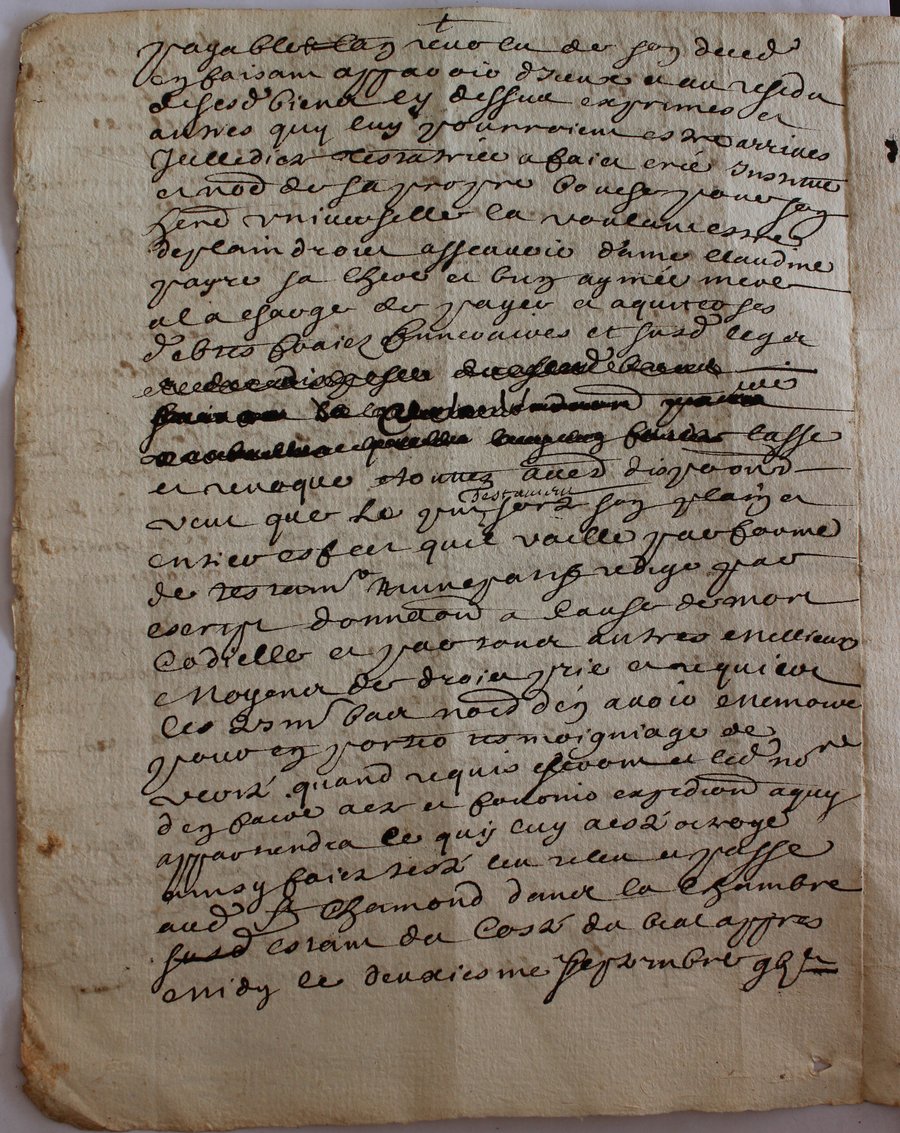 payable lan revolu de son deced
en faisant apparoir d'iceux et au residu
de sesd biens cy dessus exprimes et
autres quy luy pourroient estre arrives
Icelledicte testatrice a faict cree Institue
et nōe de sa propre bouche pour son
herē universelle la voulant estre
de plain droict asscavoir dame Claudine
payre sa chere et bien aymée mere
a la charge de payer et aquitter ses
debtes fraictz funeraires et susd legatz
casse
et revoque touttes aultres dispoōns
veut que le pnt testament sorte son plain et
entier effect quil vaille par forme
de testamt nuncupatif redigé par
escript donnatiōn a cause de mort
Codicille et par tous autres meilleurs
moyens de droict prie et requiert
les tesm par nommes d'en avoir memoire
pour en porter tesmoigniage de
verité quand requis seront et led nore
d'en faire acte et fournir expedition a quy
appartiendra ce quy luy a esté octroyé
ainsy faict testé leu releu et passé
aud St Chamond dans la chambre
susd estant du costé du bial appres
midy le deuxiesme septembre